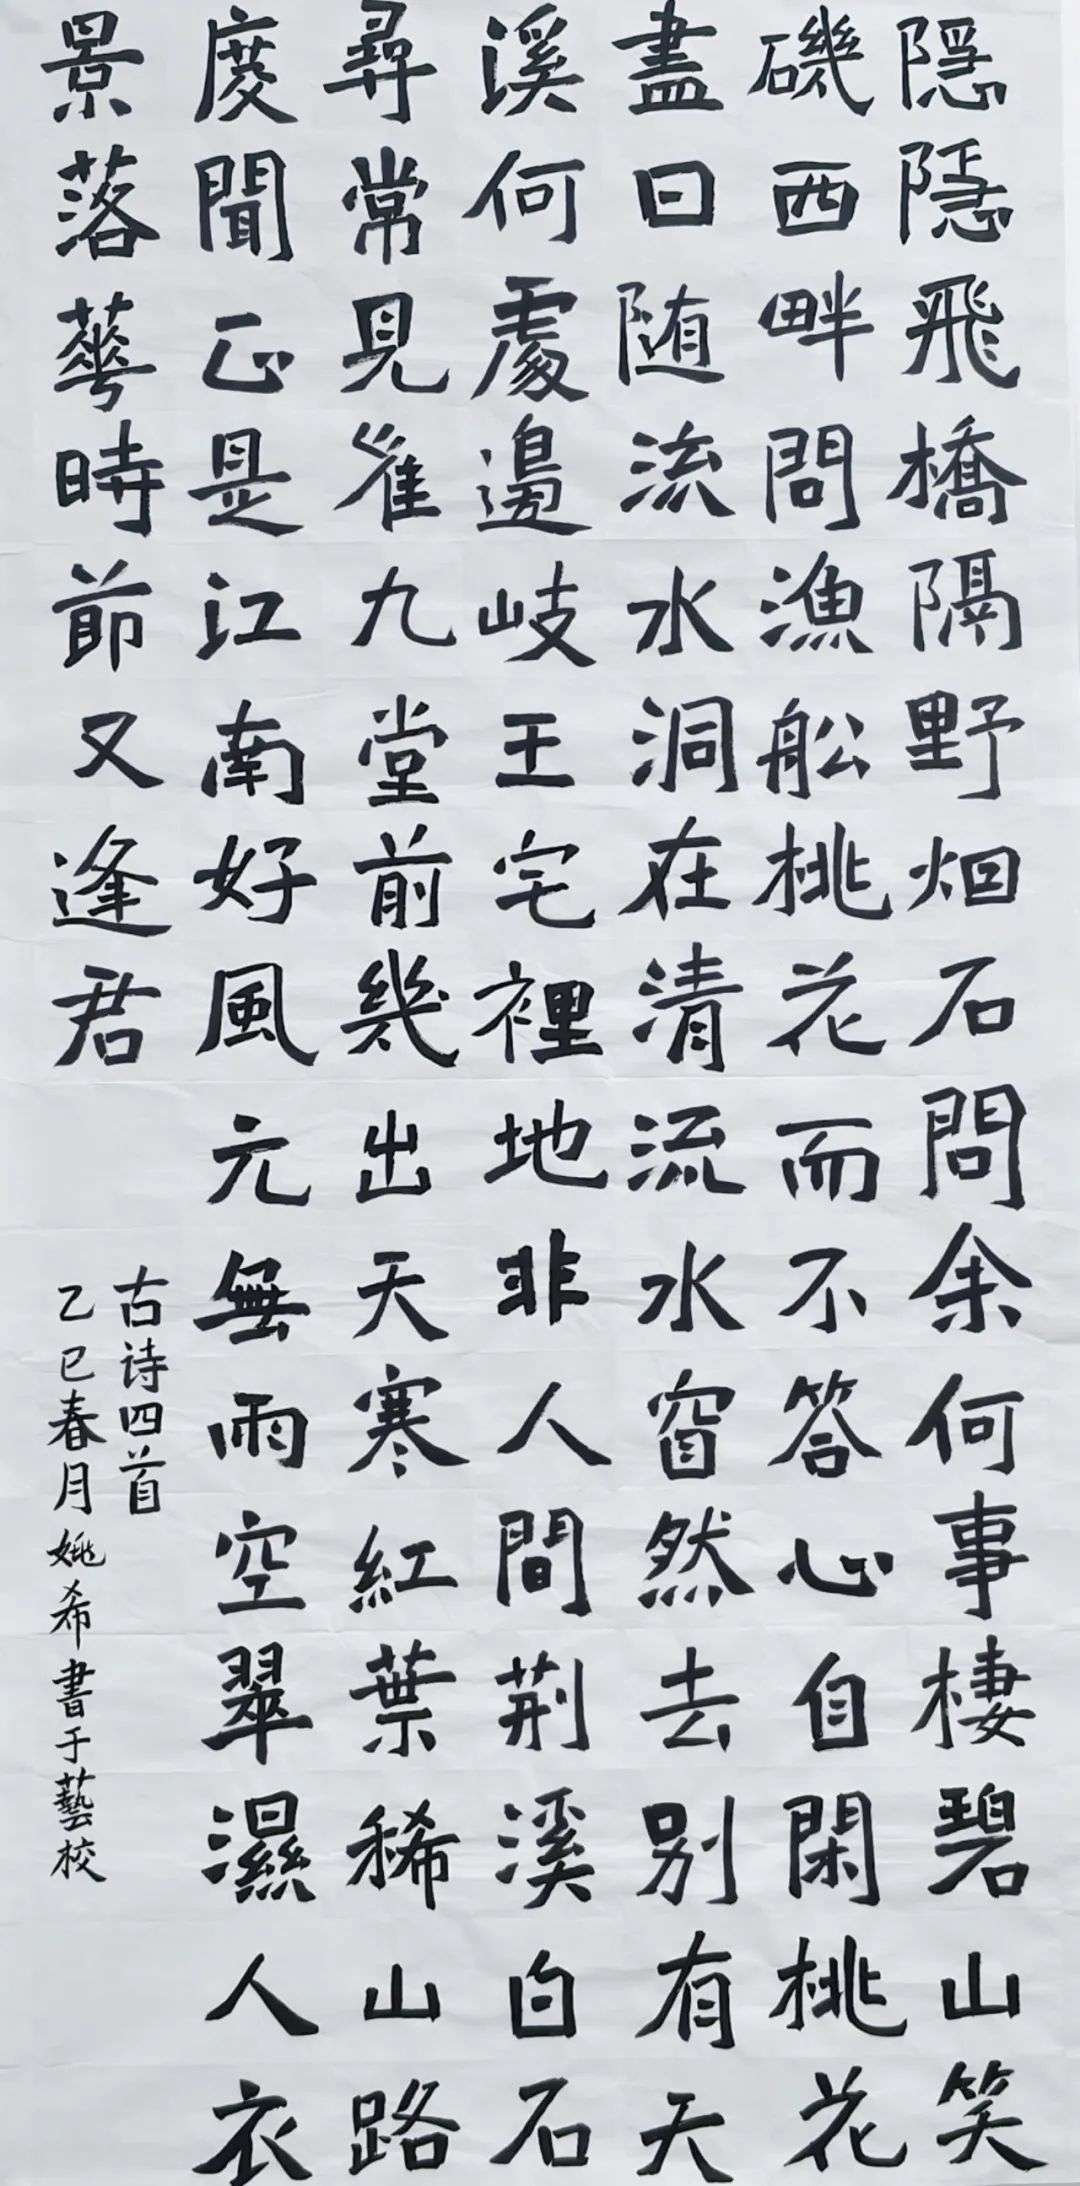 隐隐飛橋隔野烟石問余何事棲碧山笑
磯西畔問漁舩桃花而不答心自閑桃花
盡日随流水洞在清流水窅然去别有天
溪何處邊岐王宅裡地非人間荆溪白石
尋常見崔九堂前幾出天寒紅葉稀山路
度聞正是江南好風元無雨空翠濕人衣
景落華時節又逢君
古诗四首
乙巳春月姚希書于藝校